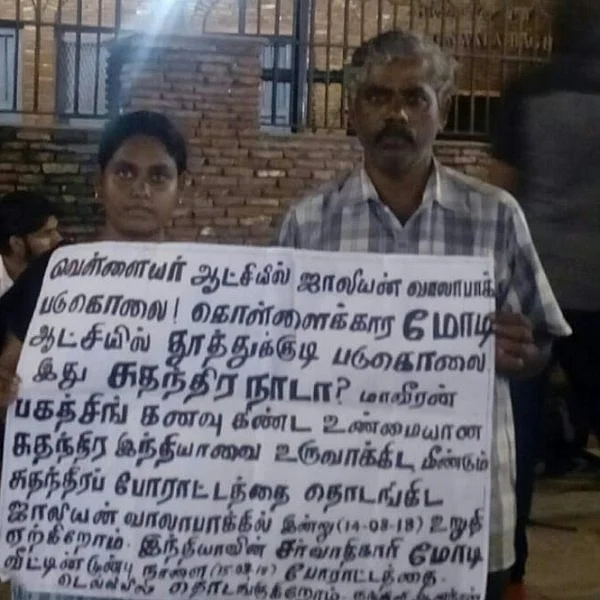 வெள்ளையர் ஆட்சியில் ஜாலியன் வாலாபாக்
படுகொலை! கொள்ளைக்கார மோடி
ஆட்சியில் தூத்துக்குடி படுகொலை
இது சுதந்திர நாடா? மாவீரன்
பகத்சிங் கனவு கண்ட உண்மையான
சுதந்திர இந்தியாவை உருவாக்கிட மீண்டும்
சுதந்திரப் போராட்டத்தை தொடங்கிட
ஜாலியன் வாலாபாக்கில் இன்று (14-08-18) உறுதி
ஏற்கிறோம். இந்தியாவின் சர்வாதிகாரி மோடி
வீட்டின் முன்பு நாளை (15-08-18) போராட்டத்தை
டெல்லியில் தொடங்குகிறோம்.